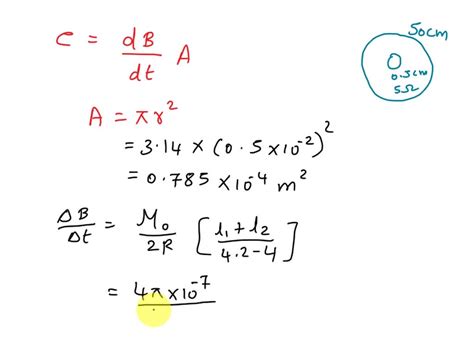 e = dB/dt A
50cm
0.5cm
5Ω
A = πr²
= 3.14 × (0.5×10⁻²)²
= 0.785 × 10⁻⁴ m²
ΔB/Δt = M₀/2R [l₁+l₂/4.2-4]
= 4π×10⁻⁷